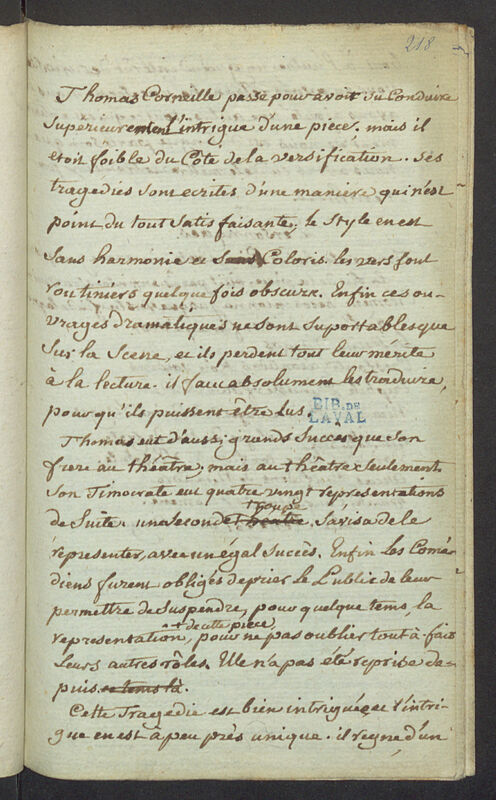 218
Thomas Corneille passe pour avoir su Conduire
Superieurement l'intrigue d'une piece. mais il
etoit foible du Côté de la versification. Ses
tragedies sont ecrites d'une maniere qui n'est
point du tout satisfaisante. le Style en est
Sans harmonie et Sans Coloris. les vers sont
routiniers quelque fois obscurx. Enfin ces ou-
vrages dramatiques ne sont suportables que
Sur la Scene, et ils perdent tout leur mérite
à la lecture. il faut absolument les traduire,
pour qu'ils puissent être lus.
BIB. DE
LAVAL
Thomas eut d'aussi grands Succes que Son
frere au théâtre, mais au théâtre seulement.
Son Timocrate eut quatre vingt représentations
troupe
de Suite. une seconde théâtre s'avisa de le
représenter, avec un égal Succès. Enfin les Comé-
diens furent obligés de prier le Public de leur
permettre de suspendre, pour quelque tems la
de cette piece
représentation, pour ne pas oublier tout à fait
leurs autres rôles. Elle n'a pas été reprise de-
puis ce tems là.
Cette Tragedie est bien intriguée et l'intri-
gue en est à peu près unique. il regne d'un